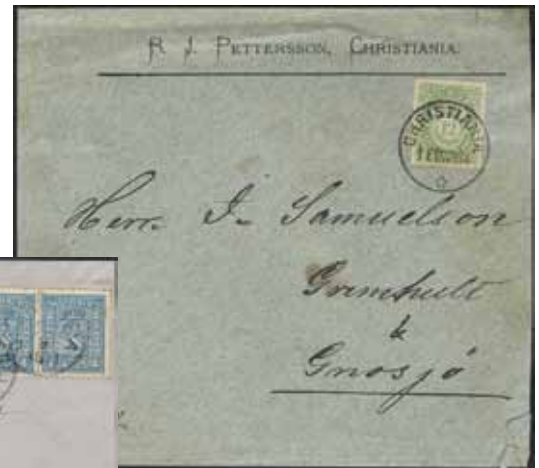 R. J. PETTERSSON, CHRISTIANIA.
CHRISTIANIA
12
Herr J. Samuelson
Gremhult
Gnosjö